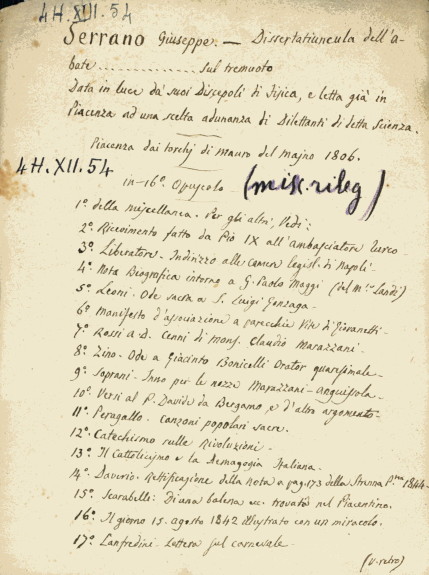 4H.XIII.54
Serrano Giuseppe. — Dissertatiuncula dell'a-
bate .................. sul tremuoto
Data in luce da' suoi Discepoli di Fisica, e letta già in
Piacenza ad una scelta adunanza di Dilettanti di detta Scienza.
Piacenza dai torchj di Mauro del Majno 1806.
4H.XII.54
in-16° Opuscolo - (misc. rileg)
1° della miscellanea. Per gli altri, Vedi:
2° Ricevimento fatto da Pio IX all'ambasciatore Turco -
3° Liberatore. Indirizzo alle camere legisl. di Napoli -
4° Nota Biografica intorno a G. Paolo Maggi (del m.se Landi)
5° Leoni. Ode sacra a S. Luigi Gonzaga -
6° Manifesto d'associazione a parecchie Vite di Gioanetti -
7° Rossi a D. Cenni di mons. Claudio Marazzani -
8° Zino. Ode a Giacinto Bonicelli Orator quaresimale -
9° Soprani - Inno per le nozze Marazzani-Anguissola -
10° Versi al P. Davide da Bergamo e d'altro argomento -
11° Perugallo. Canzoni popolari sacre.
12° Catechismo sulle Rivoluzioni -
13° Il Cattolicismo e la Demagogia Italiana.
14° Daverio. Rettificazione della nota a pag. 173 della Strenna 1844 -
15° Scarabelli: Di una balena ec. trovata nel Piacentino.
16° Il giorno 15 agosto 1842 illustrato con un miracolo.
17° Lanfredini Lettera sul carnevale -
(v. retro)